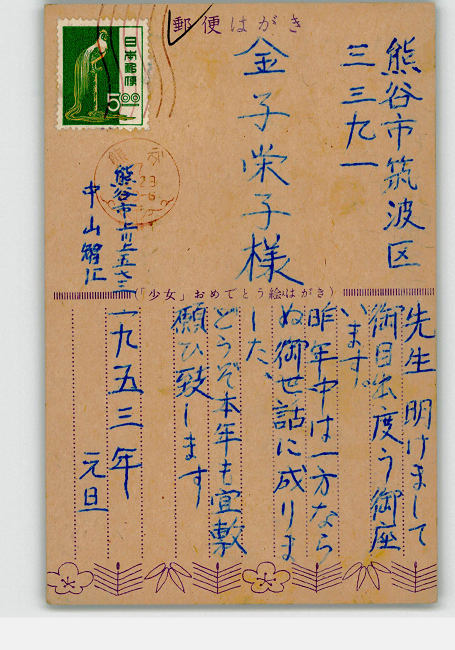 郵便はがき
日本郵便
5.00
熊谷市筑波区
三三九一
金子栄子様
熊谷市
中山
(「少女」おめでとう絵はがき)
先生 明けまして
御目出度う御座
います。
昨年中は一方なら
ぬ御世話に成りま
した、
どうぞ本年も宜敷
願ひ致します
一九五三年
元旦